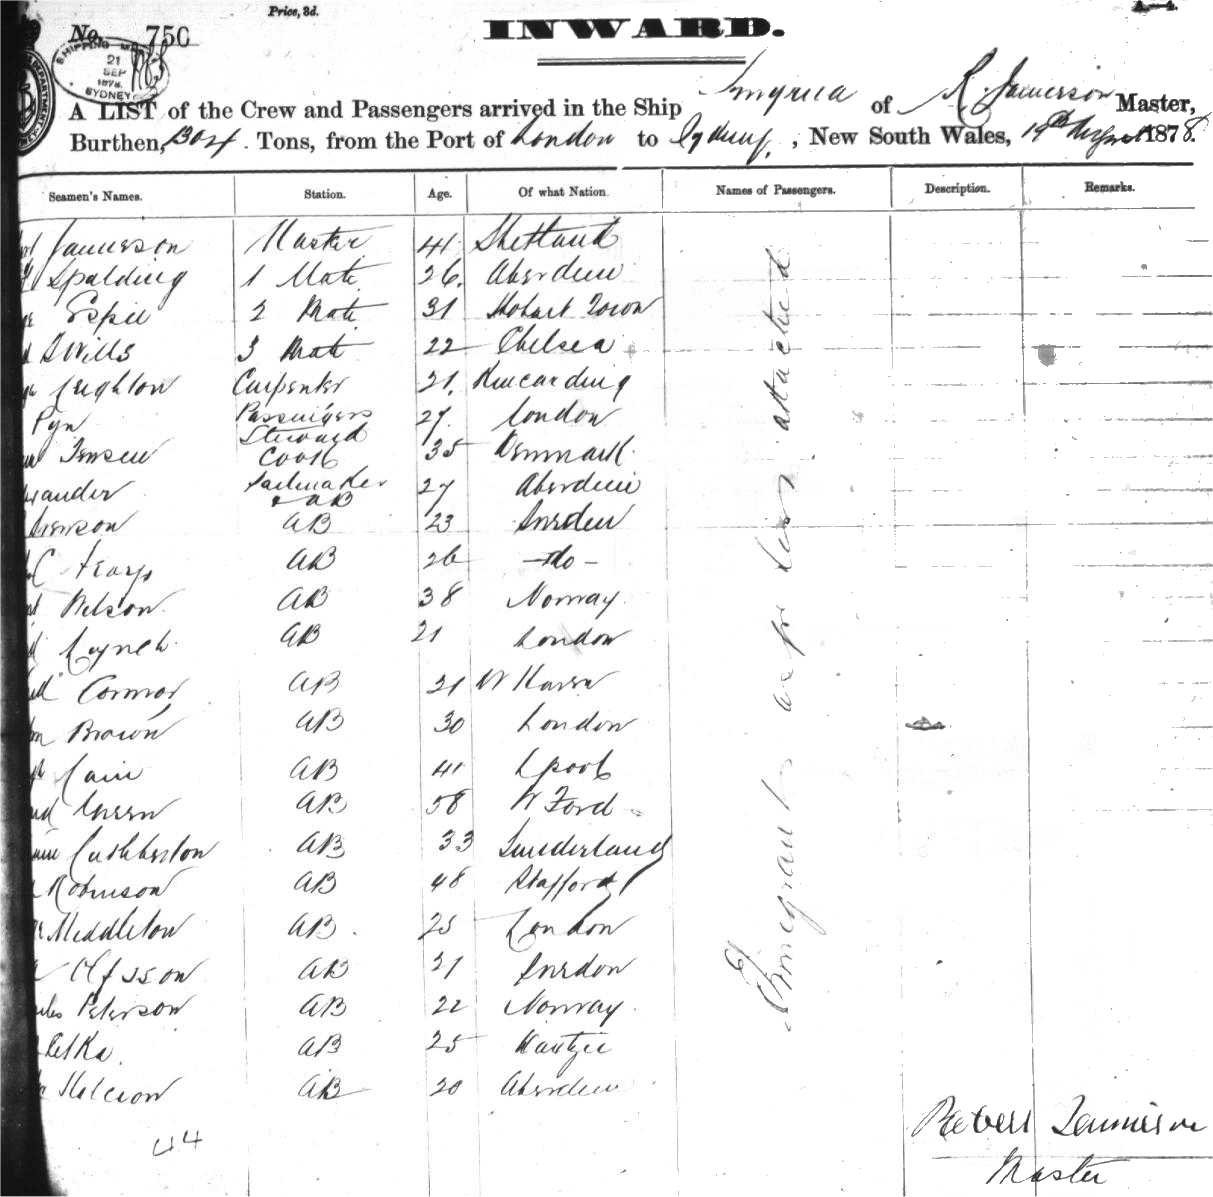 Price, 3d.
No. 750
INWARD.
SHIPPING MA
21
SEP
1878
SYDNEY
A LIST of the Crew and Passengers arrived in the Ship Smyrna of R. Jamieson Master,
Burthen, Tons, from the Port of London to Sydney, New South Wales, 19th 1878.
Seamen's Names. Station. Age. Of what Nation. Names of Passengers. Description. Remarks.
Jamieson Master 41 Shetland
Spalding 1 Mate 26. Aberdeen
2 Mate 31 Hobart Town
Wills 3 Mate 22 Chelsea
Leighton Carpenter 21. Kincarding
Pyn Passengers Steward 27. London
Jensen Cook 35 Denmark
xander Sailmaker & AB 27 Aberdeen
AB 23 Sweden
AB 26 - do -
AB 38 Norway
Lynch AB 21 London
Connor AB 21 W Haven
Brown AB 30 London
Cain AB 41 Lpool
Green AB 58 W Ford
Cuthbertson AB 33 Sunderland
Robinson AB 48 Stafford
Middleton AB 25 London
AB 31 Sweden
rles Peterson AB 22 Norway
AB 25
AB 20 Aberdeen
Emmigrants as per list attached
44
Robert Jamieson
Master